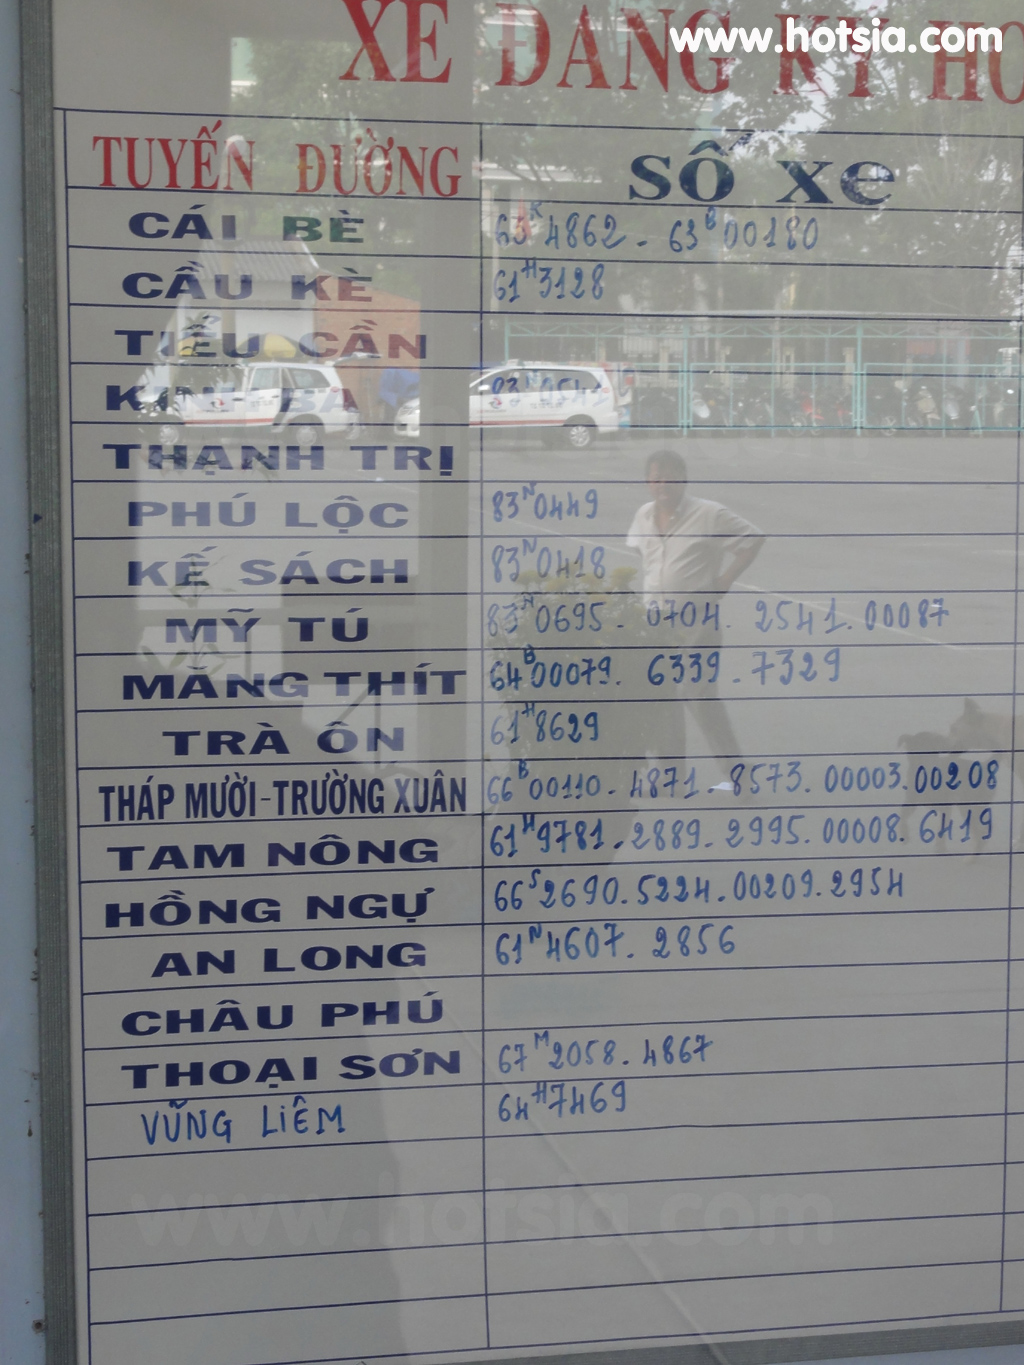 www.hotsia.com
XE ĐĂNG KÝ HO
TUYẾN ĐƯỜNG SỐ XE
CÁI BÈ 63K 4862 - 63B 00180
CẦU KÈ 61H 3128
TIỂU CẦN
KINH BA 83N 2541
THẠNH TRỊ
PHÚ LỘC 83N 0449
KẾ SÁCH 83N 0418
MỸ TÚ 83N 0695 - 0704. 2541. 00087
MĂNG THÍT 64B 00079. 6339 - 7329
TRÀ ÔN 61H 8629
THÁP MƯỜI - TRƯỜNG XUÂN 66B 00110 - 4871 - 8573. 00003. 00208
TAM NÔNG 61H 9781 - 2889 - 2995. 00008. 6419
HỒNG NGỰ 66S 2690. 5224. 00209. 2954
AN LONG 61N 4607. 2856
CHÂU PHÚ
THOẠI SƠN 67M 2058. 4867
VŨNG LIÊM 64H 7469
www.hotsia.com